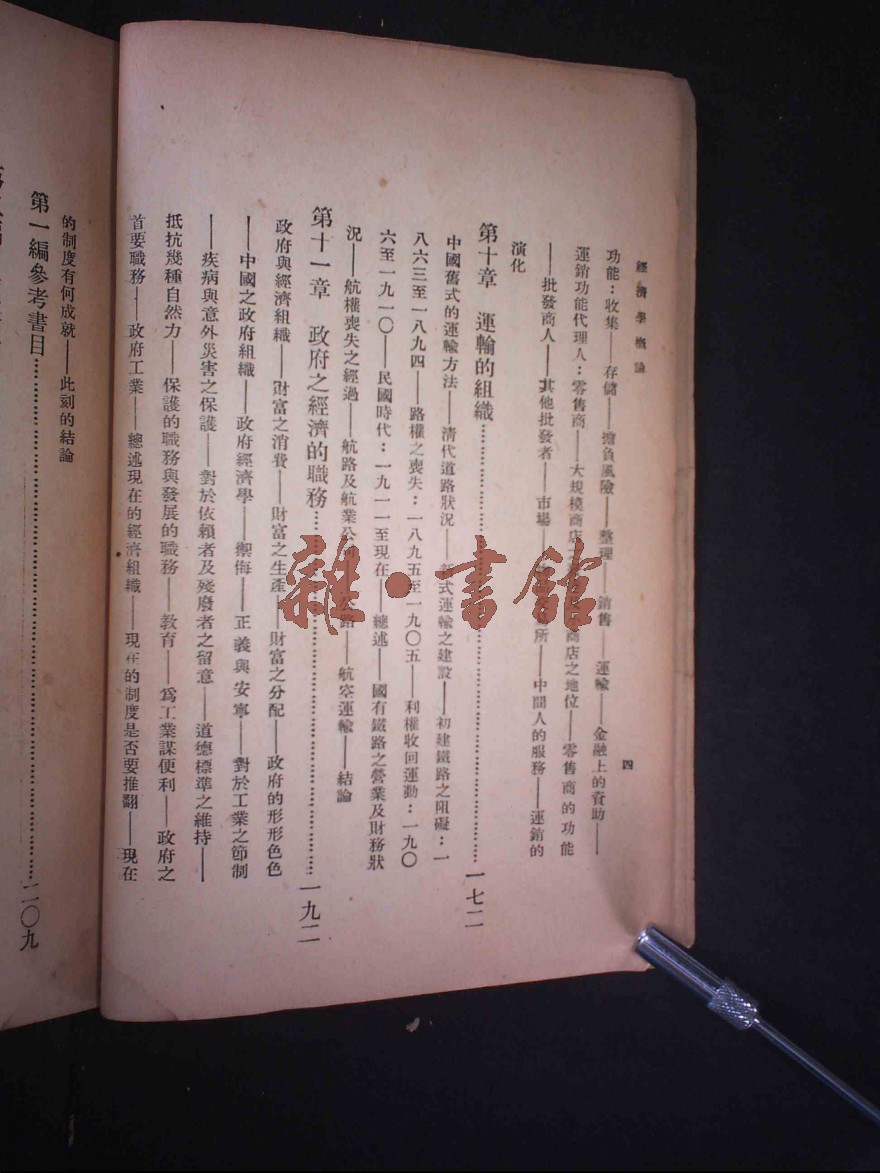 經濟學概論
四
功能：收集——存儲——擔負風險——整理——銷售——運輸——金融上的資助——
運銷功能代理人：零售商——大規模商店商店之地位——零售商的功能
——批發商人——其他批發者——市場所——中間人的服務——運銷的
演化
第十章 運輸的組織………………一七二
中國舊式的運輸方法——清代道路狀況——新式運輸之建設——初建鐵路之阻礙：一
八六三至一八九四——路權之喪失：一八九五至一九〇五——利權收回運動：一九〇
六至一九一〇——民國時代：一九一一至現在——總述——國有鐵路之營業及財務狀
況——航權喪失之經過——航路及航業公司——公路——航空運輸——結論
第十一章 政府之經濟的職務………………一九二
政府與經濟組織——財富之消費——財富之生產——財富之分配——政府的形形色色
——中國之政府組織——政府經濟學——禦侮——正義與安寧——對於工業之節制
——疾病與意外災害之保護——對於依賴者及殘廢者之留意——道德標準之維持——
抵抗幾種自然力——保護的職務與發展的職務——教育——爲工業謀便利——政府之
首要職務——政府工業——總述現在的經濟組織——現在的制度是否要推翻——現在
的制度有何成就——此刻的結論
第一編參考書目………………二〇九
雜·書館